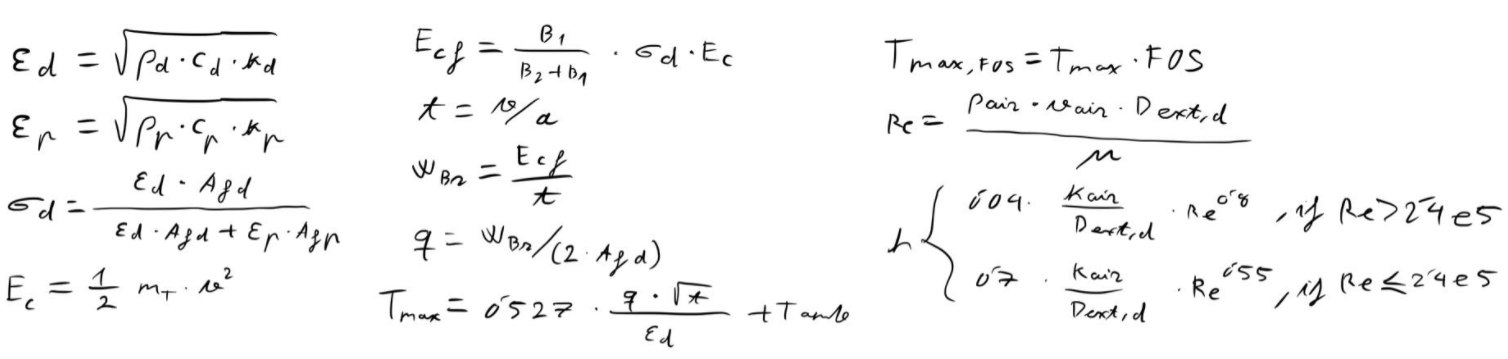 εd = √(ρd · Cd · kd)
εp = √(ρp · Cp · kp)
σd = (εd · Afd) / (εd · Afd + εp · Afp)
Ec = 1/2 mT · v²
Ecf = B1 / (B2 + b1) · σd · Ec
t = v/a
WBr = Ecf / t
q = WBr/(2 · Afd)
Tmax = 0'527 · (q · √t) / εd + Tamb
Tmax,FOS = Tmax · FOS
Re = (ρair · vair · Dext,d) / μ
h { 0'04 · Kair / Dext,d · Re^0'8 , if Re > 2'4e5
0'7 · Kair / Dext,d · Re^0'55 , if Re ≤ 2'4e5